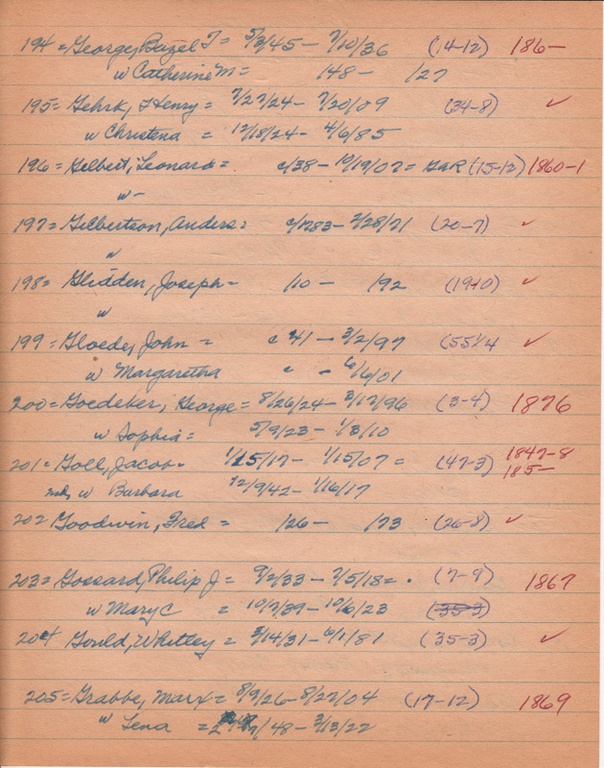 194 = George, Bazel T = 5/3/45 - 7/10/36 (14-12) 186-
w Catherine M = 148 - 127
195 = Gehrk, Henry = 7/27/24 - 7/20/09 (34-8) ✓
w Christena = 12/18/24 - 4/6/85
196 = Gelbert, Leonard = c/38 - 10/19/07 = GAR (15-12) 1860-1
w -
197 = Gilbertson, Anders = - 2/28/71 (20-7) ✓
w
198 = Glidden, Joseph - /10 - /92 (19-10) ✓
w
199 = Gloede, John = c 41 - 3/2/97 (55 1/4 ✓
w Margaretha c - 6/6/01
200 = Goedeker, George = 8/26/24 - 3/17/96 (3-4) 1876
w Sophia = 5/9/23 - 1/3/10
201 = Goll, Jacob - 1/15/17 - 1/15/07 = (47-3) 1847-8
185-
2nd, w Barbara 12/9/42 - 1/16/17
202 Goodwin, Fred = /26 - /73 (26-8) ✓
203 = Gossard, Philip J = 9/2/33 - 7/5/18 = . (7-9) 1867
w Mary C = 10/7/39 - 10/6/23 (35-3)
204 Gould, Whitley = 5/14/31 - 6/1/81 (35-3) ✓
205 = Grabbe, Marx = 8/9/26 - 8/27/04 (17-12) 1869
w Lena = /48 - 3/13/22